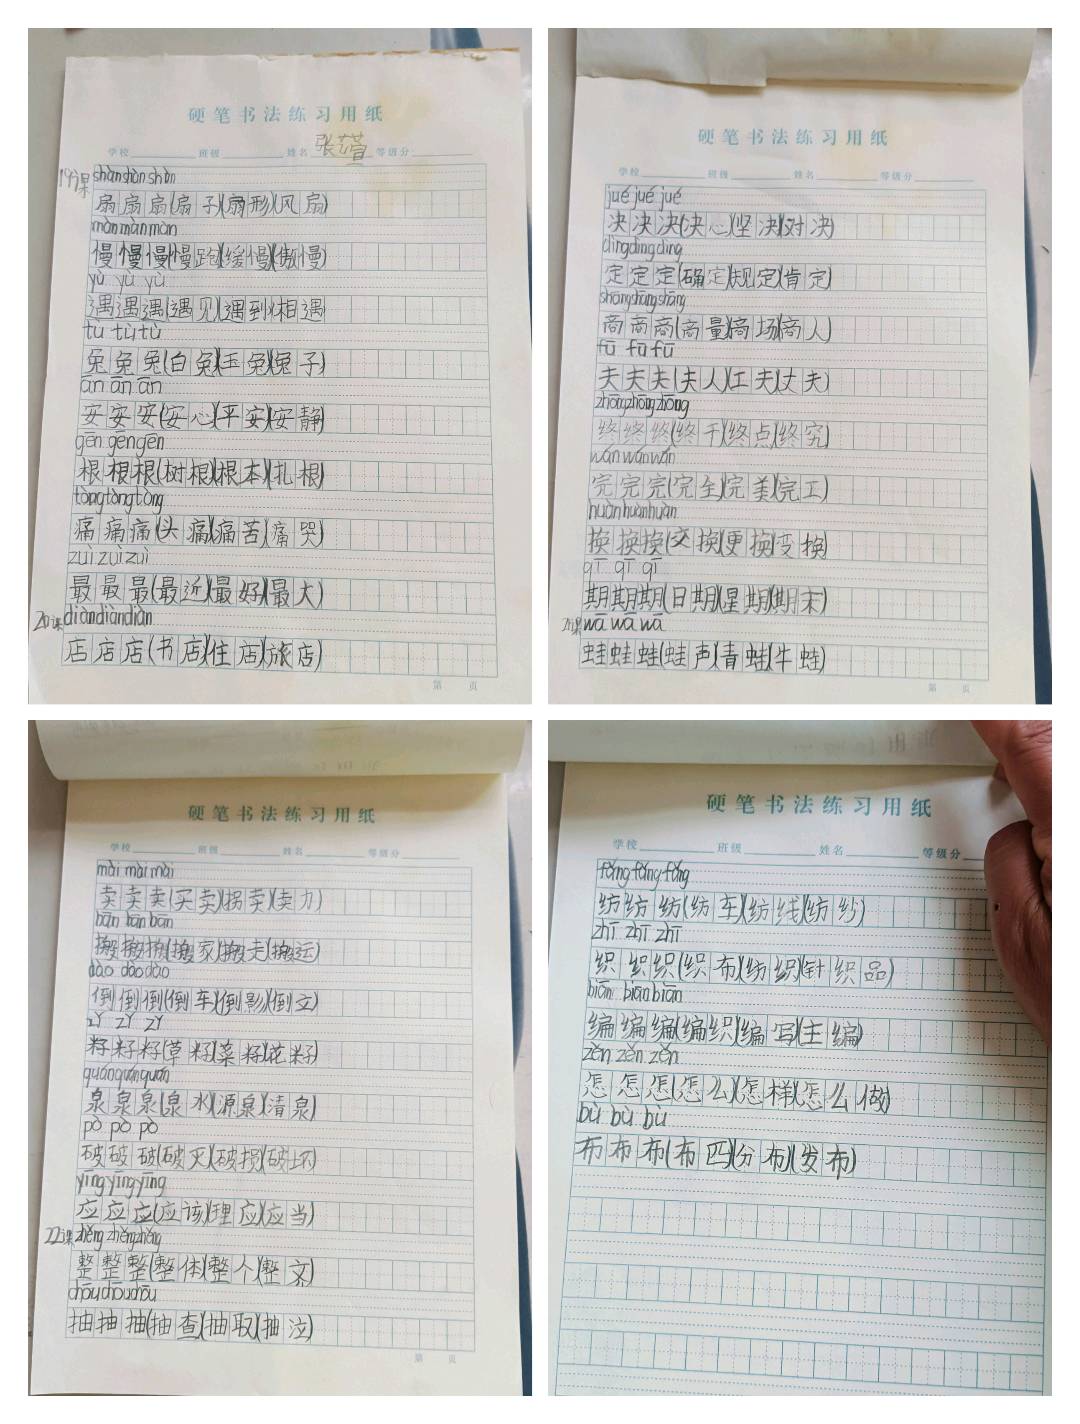 硬笔书法练习用纸
学校 班级 姓名 张芯萱 等级分
19课 shàn shàn shàn
扇扇扇(扇子)(扇形)(风扇)
màn màn màn
慢慢慢(慢跑)(缓慢)(傲慢)
yù yù yù
遇遇遇(遇见)(遇到)(相遇)
tù tù tù
兔兔兔(白兔)(玉兔)(兔子)
ān ān ān
安安安(安心)(平安)(安静)
gēn gēn gēn
根根根(树根)(根本)(扎根)
tòng tòng tòng
痛痛痛(头痛)(痛苦)(痛哭)
zuì zuì zuì
最最最(最近)(最好)(最大)
20课 diàn diàn diàn
店店店(书店)(住店)(旅店)
第 页
硬笔书法练习用纸
学校 班级 姓名 等级分
jué jué jué
决决决(决心)(坚决)(对决)
dìng dìng dìng
定定定(确定)(规定)(肯定)
shāng shāng shāng
商商商(商量)(商场)(商人)
fū fū fū
夫夫夫(夫人)(工夫)(丈夫)
zhōng zhōng zhōng
终终终(终于)(终点)(终究)
wán wán wán
完完完(完全)(完美)(完工)
huàn huàn huàn
换换换(交换)(更换)(变换)
qī qī qī
期期期(日期)(星期)(期末)
21课 wā wā wā
蛙蛙蛙(蛙声)(青蛙)(牛蛙)
第 页
硬笔书法练习用纸
学校 班级 姓名 等级分
mài mài mài
卖卖卖(买卖)(拐卖)(卖力)
bān bān bān
搬搬搬(搬家)(搬走)(搬运)
dào dào dào
倒倒倒(倒车)(倒影)(倒立)
zǐ zǐ zǐ
籽籽籽(草籽)(菜籽)(花籽)
quán quán quán
泉泉泉(泉水)(源泉)(清泉)
pò pò pò
破破破(破灭)(破损)(破坏)
yīng yīng yīng
应应应(应该)(理应)(应当)
22课 zhěng zhěng zhěng
整整整(整体)(整个)(整齐)
chōu chōu chōu
抽抽抽(抽查)(抽取)(抽泣)
第 页
硬笔书法练习用纸
学校 班级 姓名 等级分
fǎng fǎng fǎng
纺纺纺(纺车)(纺线)(纺纱)
zhī zhī zhī
织织织(织布)(纺织)(针织品)
biān biān biān
编编编(编织)(编写)(主编)
zěn zěn zěn
怎怎怎(怎么)(怎样)(怎么做)
bù bù bù
布布布(布匹)(分布)(发布)